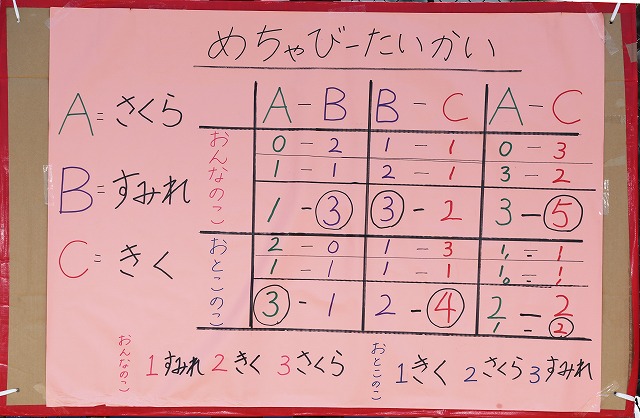 めちゃびーたいかい
A=さくら
B=すみれ
C=きく
A-B B-C A-C
おんなのこ
0-2 1-1 0-3
1-1 2-1 3-2
1-3 3-2 3-5
おとこのこ
2-0 1-3 1-1
1-1 1-1 1-1
3-1 2-4 2-2
1-2
おんなのこ
1すみれ 2きく 3さくら
おとこのこ
1きく 2さくら 3すみれ